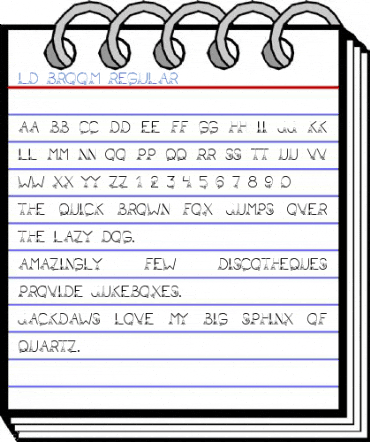 LD BROOM REGULAR
AA BB CC DD EE FF GG HH II JJ KK
LL MM NN OO PP QQ RR SS TT UU VV
WW XX YY ZZ 1 2 3 4 5 6 7 8 9 0
THE QUICK BROWN FOX JUMPS OVER
THE LAZY DOG.
AMAZINGLY FEW DISCOTHEQUES
PROVIDE JUKEBOXES.
JACKDAWS LOVE MY BIG SPHINX OF
QUARTZ.